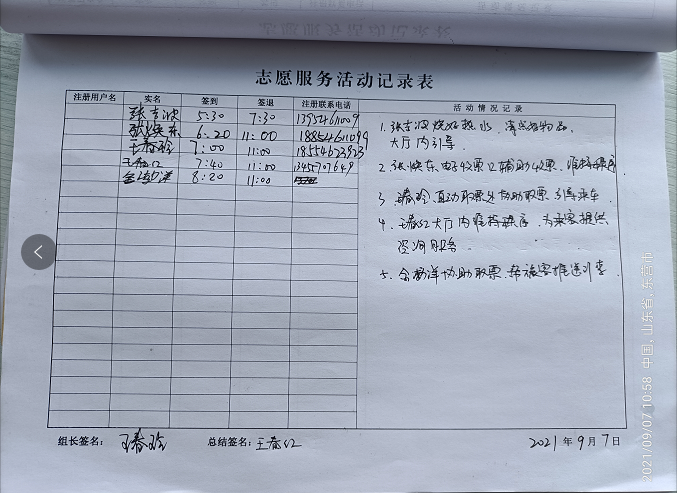 志愿服务活动记录表
注册用户名 实名 签到 签退 注册联系电话 活动情况记录
张吉波 5:30 7:30 13954611009
张焕东 6:20 11:00 18854611099
王春玲 7:00 11:00 18554623923
王春红 7:40 11:00 13455707649
8:20 11:00
1. 张吉波烧好热水、清点好物品、
大厅内引导。
2. 张焕东电子收票口辅助收票、维持秩序
3. 春玲自动取票处协助取票、引导乘车
4. 王春红大厅内维持秩序、为乘客提供
咨询服务
5. 洋协助取票、帮旅客推送行李.
组长签名: 王春玲 总结签名: 王春红 2021年9月7日
2021/09/07 10:58 中国, 山东省, 东营市